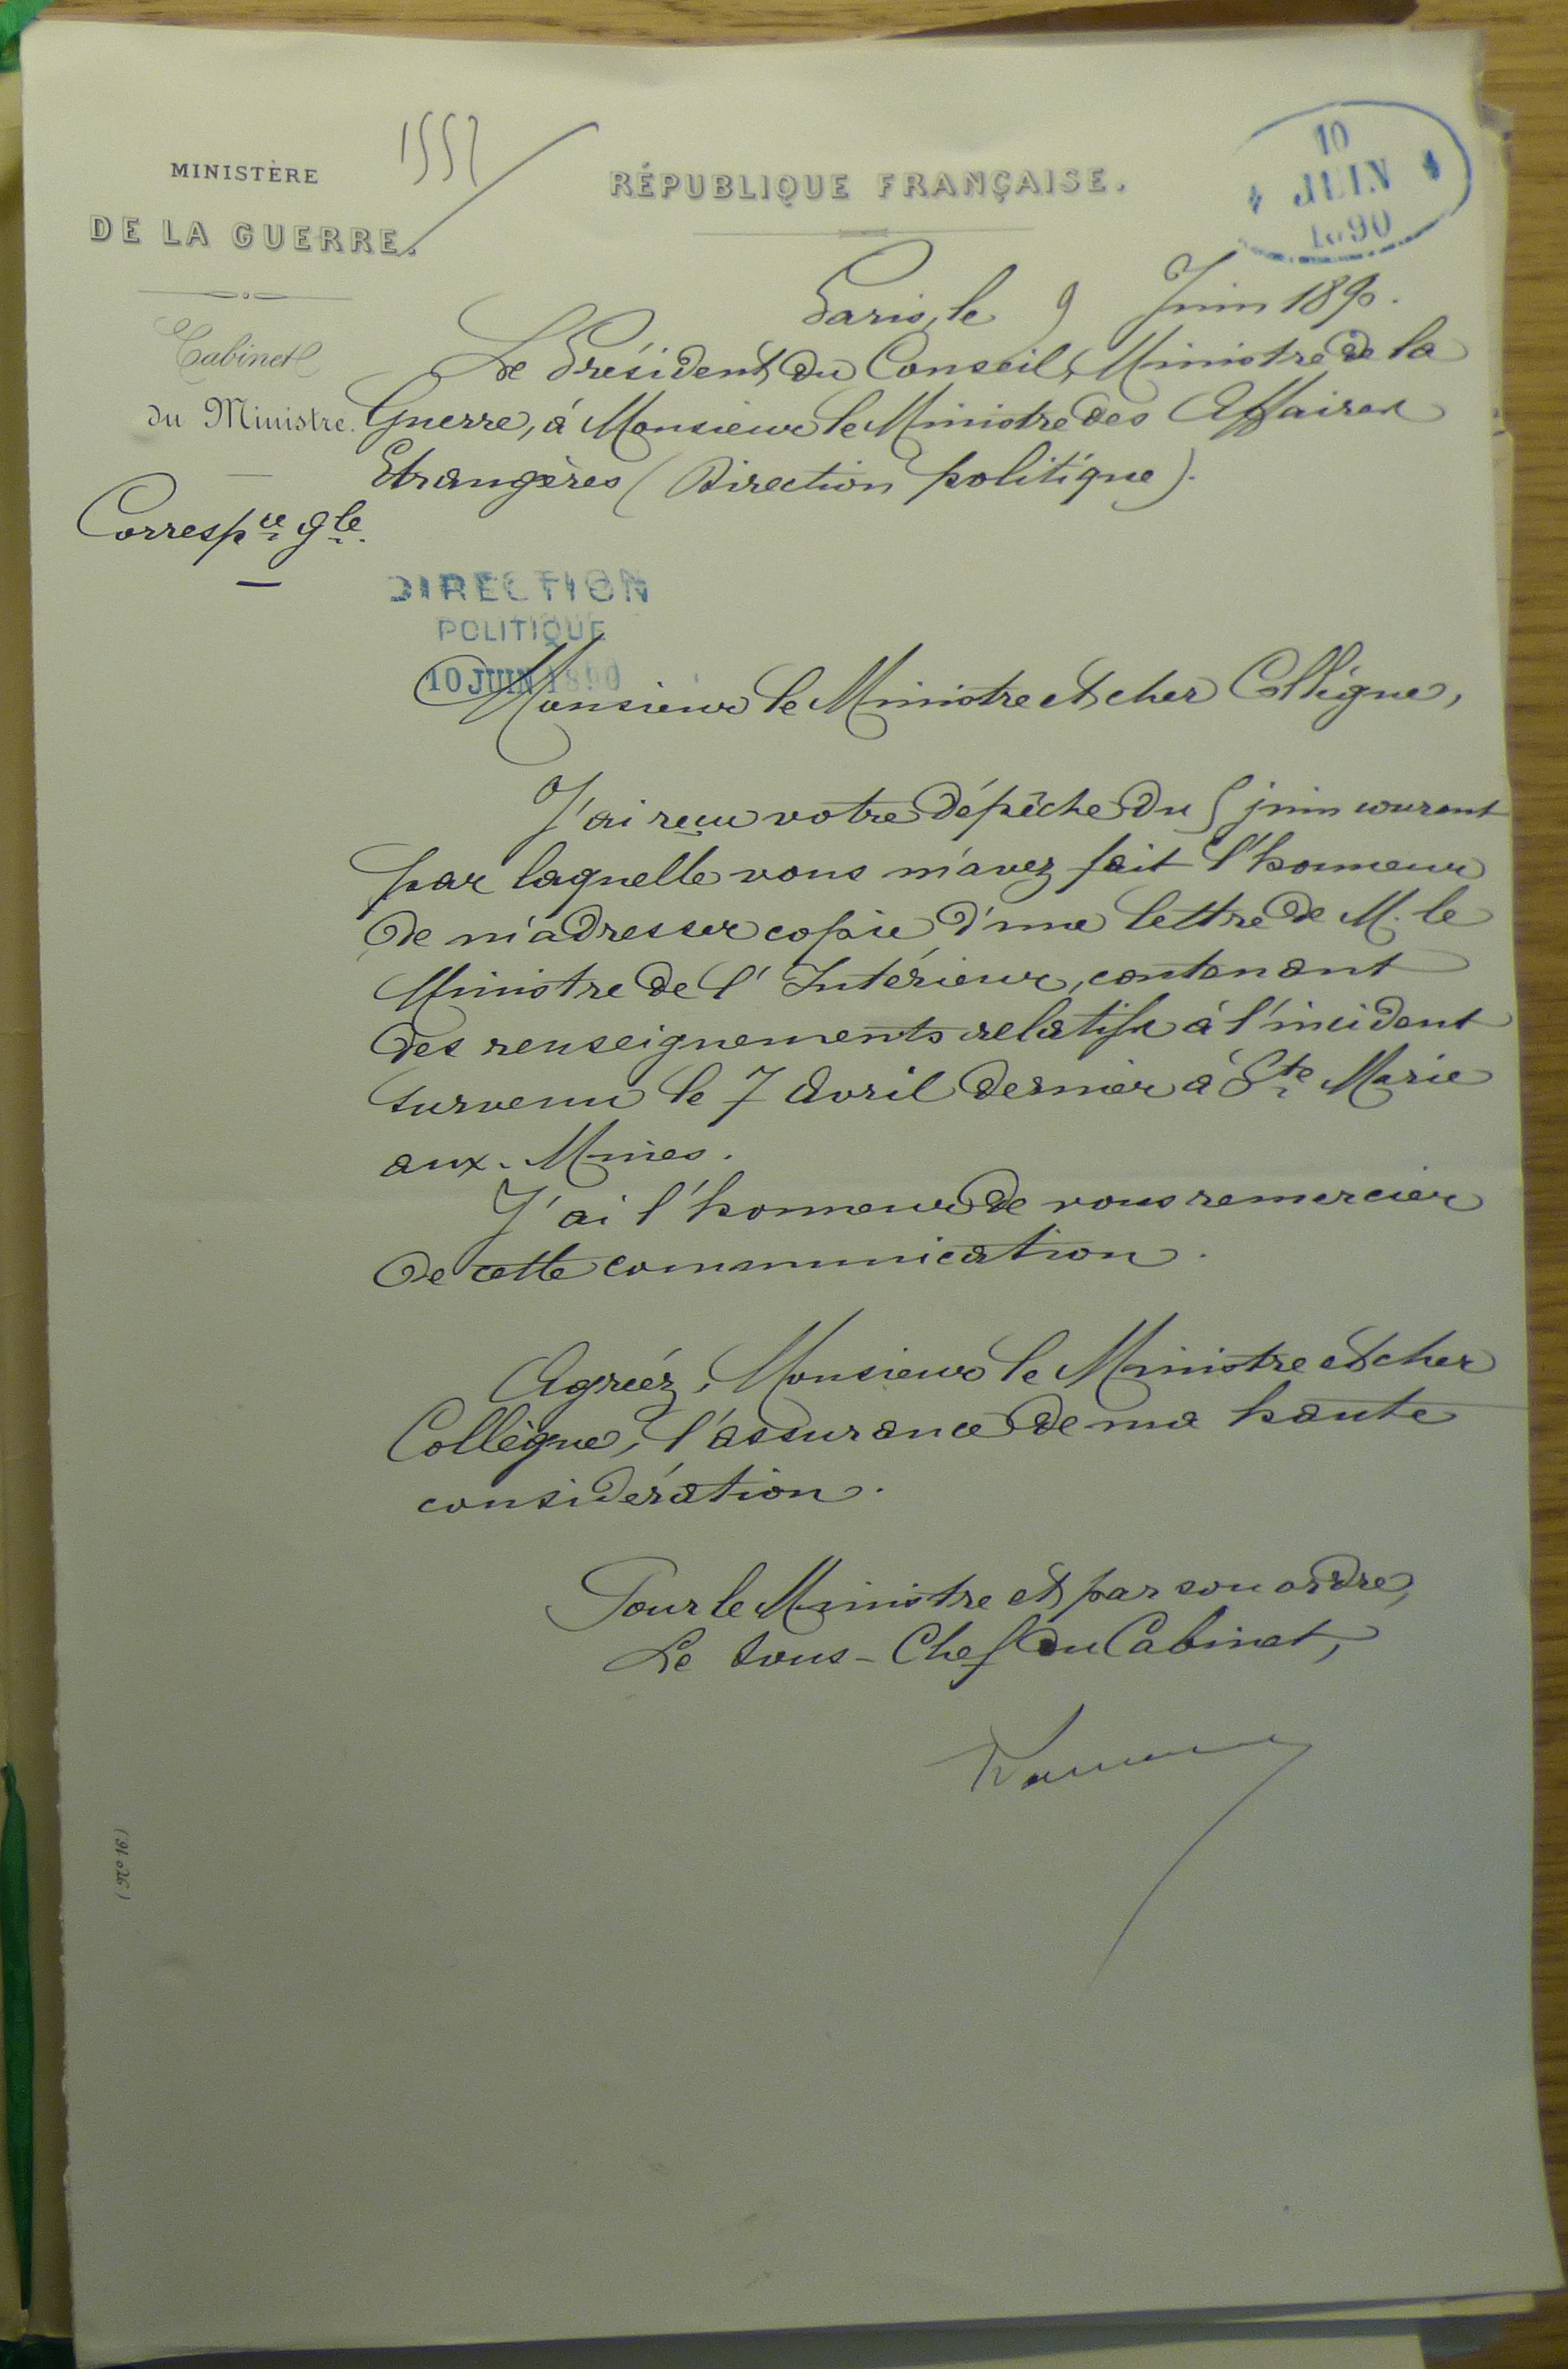 MINISTÈRE
DE LA GUERRE.
1552
RÉPUBLIQUE FRANÇAISE.
10
JUIN
1890
Cabinet
du Ministre.
Corresp.ce gle.
Paris, le 9 Juin 1890.
Le Président du Conseil, Ministre de la
Guerre, à Monsieur le Ministre des Affaires
Etrangères (Direction politique).
DIRECTION
POLITIQUE
10 JUIN 1890
Monsieur le Ministre et cher Collègue,
J'ai reçu votre dépêche du 5 juin courant
par laquelle vous m'avez fait l'honneur
de m'adresser copie d'une lettre de M. le
Ministre de l'Intérieur, contenant
des renseignements relatifs à l'incident
survenu le 7 Avril dernier à Ste Marie
aux-Mines.
J'ai l'honneur de vous remercier
de cette communication.
Agréez, Monsieur le Ministre et cher
Collègue, l'assurance de ma haute
considération.
Pour le Ministre et par son ordre,
Le Sous-Chef du Cabinet,
(No 16)